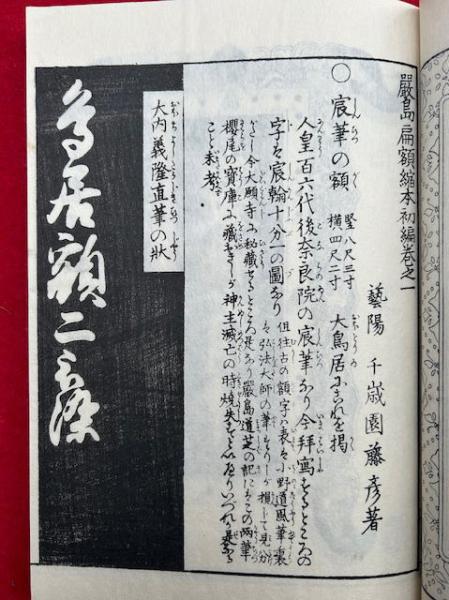 嚴島扁額縮本初編巻之一
藝陽　千歳園藤彦著
○宸筆の額　竪八尺三寸　横四尺二寸　大鳥居にこれを掲
人皇百六代後奈良院の宸筆なり今拝寫するところの
字は宸翰十分一の圖なり
但往古の額字は表を小野道風筆裏
を弘法大師の筆なりしが損じて見分
がたし今大願寺に秘藏せるところ是なり嚴島道芝の記にはこの両筆
櫻尾の寶庫に藏おきしが神主滅亡の時焼失すといへりいづれ是なる
こと未考
大内義隆直筆の状
鳥居額二之添